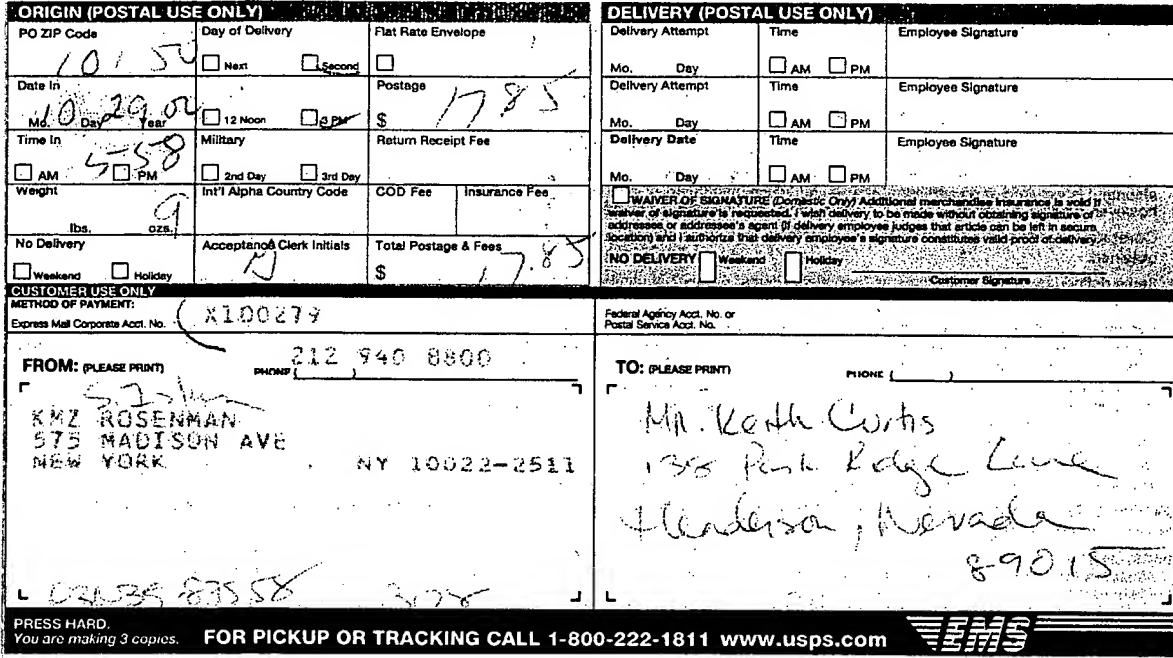 ORIGIN (POSTAL USE ONLY)
PO ZIP Code
Day of Delivery
Flat Rate Envelope
Next Second
Date In
Postage
10 29 02
Mo. Day Year
12 Noon 3 PM
$ 17 85
Time In
Military
Return Receipt Fee
5-58
AM PM
2nd Day 3rd Day
Weight
Int'l Alpha Country Code
COD Fee
Insurance Fee
9
lbs. ozs.
No Delivery
Acceptance Clerk Initials
Total Postage & Fees
Weekend Holiday
$ 17.85
DELIVERY (POSTAL USE ONLY)
Delivery Attempt Time Employee Signature
Mo. Day AM PM
Delivery Attempt Time Employee Signature
Mo. Day AM PM
Delivery Date Time Employee Signature
Mo. Day AM PM
WAIVER OF SIGNATURE (Domestic Only) Additional merchandise insurance is void if
waiver of signature is requested. I wish delivery to be made without obtaining signature of
addressee or addressee's agent (if delivery employee judges that article can be left in secure
location) and I authorize that delivery employee's signature constitutes valid proof of delivery.
NO DELIVERY Weekend Holiday
Customer Signature
CUSTOMER USE ONLY
METHOD OF PAYMENT:
Express Mail Corporate Acct. No. X100279
Federal Agency Acct. No. or
Postal Service Acct. No.
FROM: (PLEASE PRINT) PHONE 212 940 8800
KMZ ROSENMAN
575 MADISON AVE
NEW YORK NY 10022-2511
TO: (PLEASE PRINT) PHONE
Mr. Keith Curtis
Ridge Lane
Henderson, Nevada
89015
PRESS HARD.
You are making 3 copies.
FOR PICKUP OR TRACKING CALL 1-800-222-1811 www.usps.com
EMS